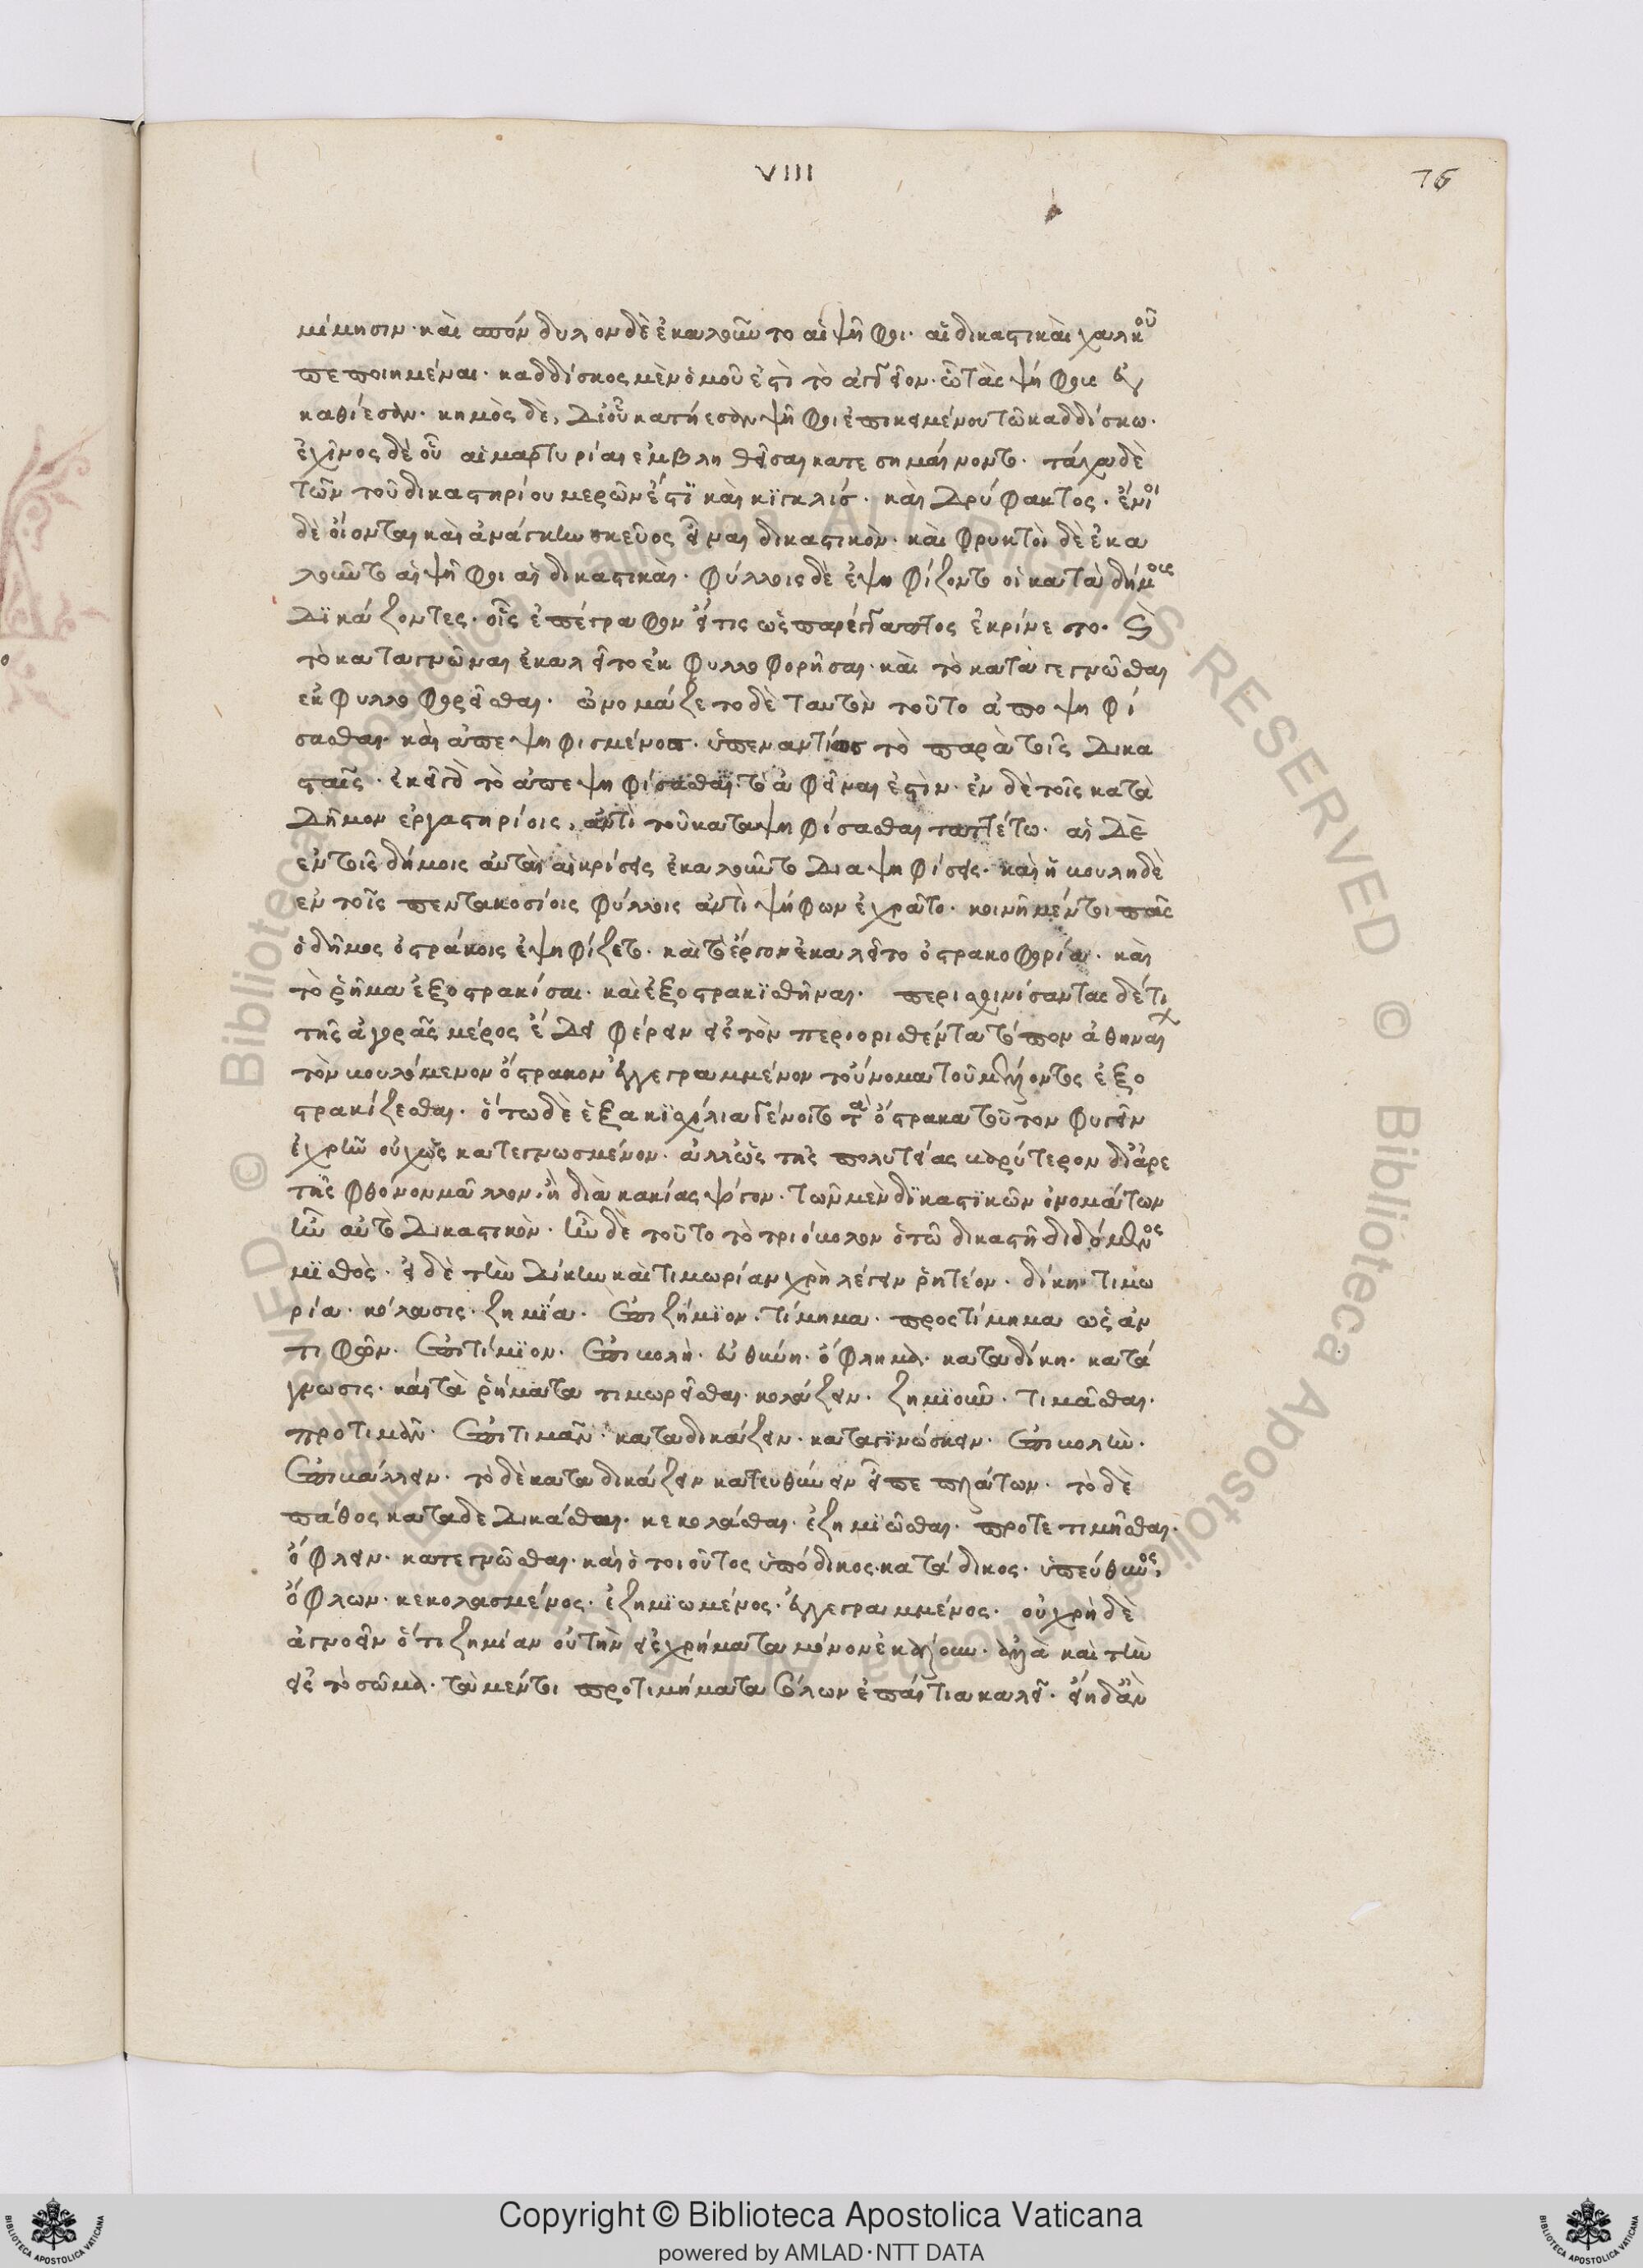 VIII
76
μίμησιν· καὶ σπόνδυλον δὲ ἐκαλοῦντο αἱ ψῆφοι· αἱ δικαστικαὶ χαλκοῦ
πεποιημέναι· καδδίσκος μὲν ὁμοῦ ἐστὶ τὸ ἀγγεῖον· ᾧ τὰς ψήφους ἐγ
καθίεσαν· κημὸς δὲ, δι οὗ κατῄεσαν ψῆφοι ἐπικειμένου τῷ καδδίσκω·
ἐχῖνος δέ οὗ αἱ μαρτυρίαι ἐμβληθεῖσαι κατεσημαίνοντο· τάχα δὲ
τῶν τοῦ δικαστηρίου μερῶν ἐστὶ καὶ κϊγκλίσ· καὶ δρύφακτος· ἔνιοί
δὲ οἴονται καὶ ἀνάγκην σκεῦος εἶναι δικαστικὸν· καὶ φρυκτοὶ δὲ ἐκα
λοῦντο αἱ ψῆφοι αἱ δικαστικαὶ· φύλλοις δὲ ἐψηφίζοντο οἱ κατὰ δήμους
δϊκάζοντες· οἷς ἐπέγραφον εἴ τις ὡς παρέγγραπτος ἐκρίνετο· καὶ
τὸ καταγνῶναι ἐκαλεῖτο ἐκφυλλοφορῆσαι· καὶ τὸ κατὰ γεγνῶσθαι
ἐκφυλλοφορεῖσθαι· ὠνομάζετο δὲ ταυτὸν τοῦτο ἀποψηφί
σασθαι· καὶ ἀπεψηφισμένοσ· ὑπεναντίωσ τὸ παρὰ τοῖς δικα
σταῖς· ἐκεῖ γὰρ τὸ ἀπεψηφίσασθαϊ· τὸ ἀφεῖναι ἐστὶν· ἐν δὲ τοῖς κατὰ
δῆμον ἐργαστηρίοις, ἀντὶ τοῦ καταψηφίσασθαι ταττέτω· αἱ δὲ
ἐν τοῖς δήμοις αὐταὶ αἱ κρίσεις ἐκαλοῦντο διαψηφίσεις· καὶ ἡ βουλὴ δὲ
ἐν τοῖς πεντακοσίοις φύλλοις ἀντὶ ψήφων ἐχρᾶτο· κοινῇ μέντοι πᾶς
ὁ δῆμος ὀστράκοις ἐψηφίζετο· καὶ τὸ ἔργον ἐκαλεῖτο ὀστρακοφορία· καὶ
τὸ ῥῆμα ἐξοστρακίσαι· καὶ ἐξοστρακϊσθῆναι· περισχοινίσαντας δέ τι
τῆς ἀγορᾶς μέρος ἔδει φέρειν εἰς τὸν περιορισθέντα τόπον ἀθηναι
τὸν βουλόμενον ὄστρακον ἐγγεγραμμένον τοὔνομα τοῦ μέλλοντος ἐξο
στρακίζεσθαι· ὅτω δὲ ἑξακϊσχίλια γένοιτο τὰ ὄστρακα τοῦτον φυγεῖν
ἐχρῆν οὐχ ὡς κατεγνωσμένον· ἀλλ ὡς τῆς πολυτείας βαρύτερον δἰ ἀρε
τῆς φθόνον μᾶλλον. ἢ διὰ κακίας ψόγον· τῶν μὲν δϊκαστϊκῶν ὀνομάτων
ἦν αὐτὸ δικαστικὸν· ἦν δὲ τοῦτο τὸ τριόβολον ὃ τῷ δικαστῇ διδόμενος
μϊσθὸς· εἰ δὲ τὴν δίκην καὶ τιμωρίαν χρὴ λέγειν ῥητέον· δίκη· τιμω
ρία· κόλασις· ζημΐα· ἐπιζήμϊον· τίμημα· προστίμημα ὡς ἀν
τιφῶν· ἐπιτίμϊον· ἐπιβολὴ· εὐθύνη· ὄφλημα· καταδίκη· κατά
γνωσις· καὶ τὰ ῥήματα τιμωρεῖσθαι· κολάζειν· ζημϊοῦν· τιμᾶσθαι·
προτιμᾶν· ἐπιτιμᾶν· καταδικάζειν· καταγϊνώσκειν· ἐπιβολὴν·
ἐπιβάλλειν· τὸ δὲ καταδικάζειν κατευθύνειν εἶπε πλάτων· τὸ δὲ
πάθος καταδεδικάσθαι· κεκολάσθαι· ἐζημϊῶσθαι· προτετιμῆσθαι·
ὄφλειν· κατεγνῶσθαι· καὶ ὁ τοιοῦτος ὑπόδικος· κατάδικος· ὑπεύθυνος,
ὄφλων· κεκολασμένος· ἐζημϊωμένος· ἐγγεγραμμένος· οὐ χρὴ δὲ
ἀγνοεῖν ὅτι ζημίαν οὐ τὴν εἰς χρήματα μόνον ἐκάλουν· ἀλλὰ καὶ τὴν
εἰς τὸ σῶμα· τὰ μέντοι προτιμήματα σόλων ἐπαίτια καλεῖ· εἴη δ ἂν